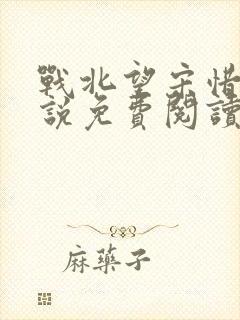 戰北望宋惜
說免費閱讀
麻藥子